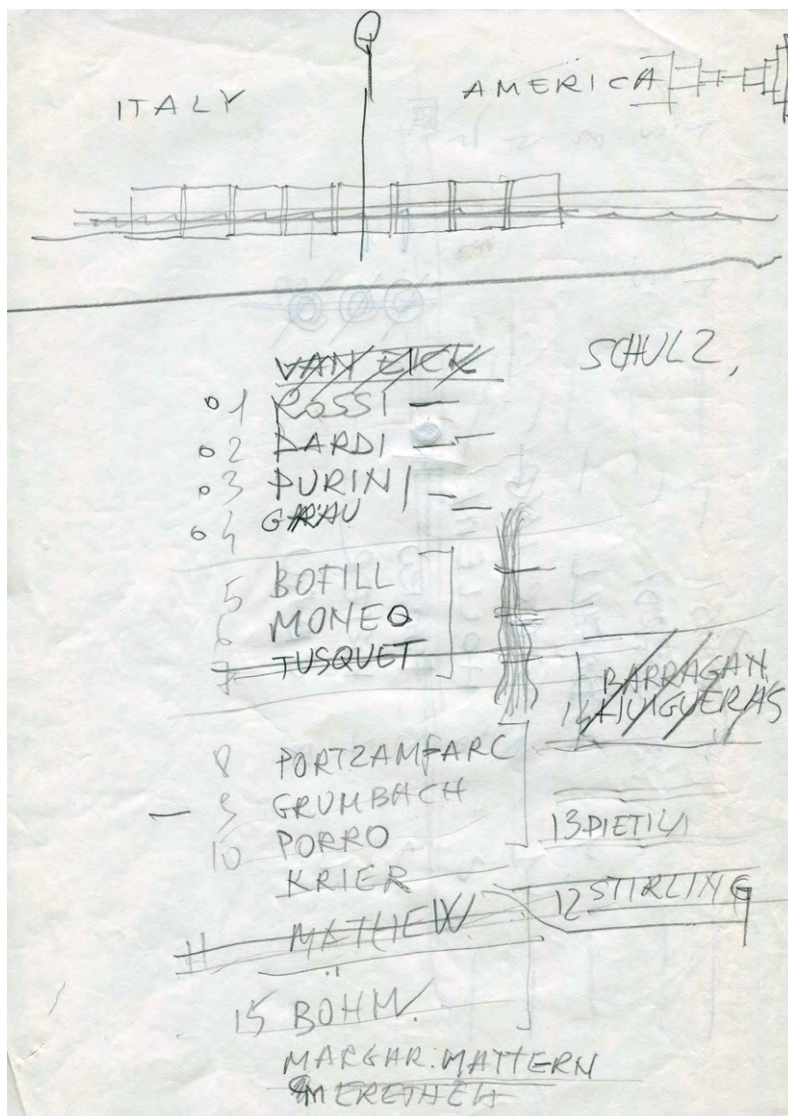 ITALY
AMERICA
VAN EICK
SCHULZ,
1 ROSSI
2 DARDI
3 PURINI
4 GRAU
5 BOFILL
6 MONEO
7 TUSQUET
BARRAGAN
14
8 PORTZAMFARC
9 GRUMBACH
10 PORRO
13 PIETILA
KRIER
12 STIRLING
11 MATHEW
15 BÖHM.
MARGHR. MATTERN